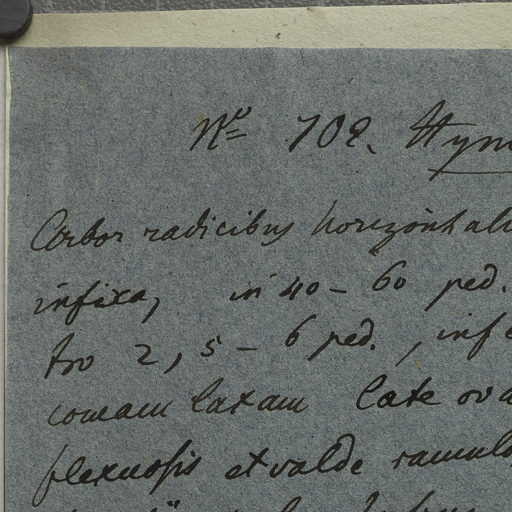 No 702. Hym
Arbor radicibus horizontal
infixa, in 40 – 60 ped.
tro 2, 5 – 6 ped., inf
comam latam late ov
flexuosis et valde ramul